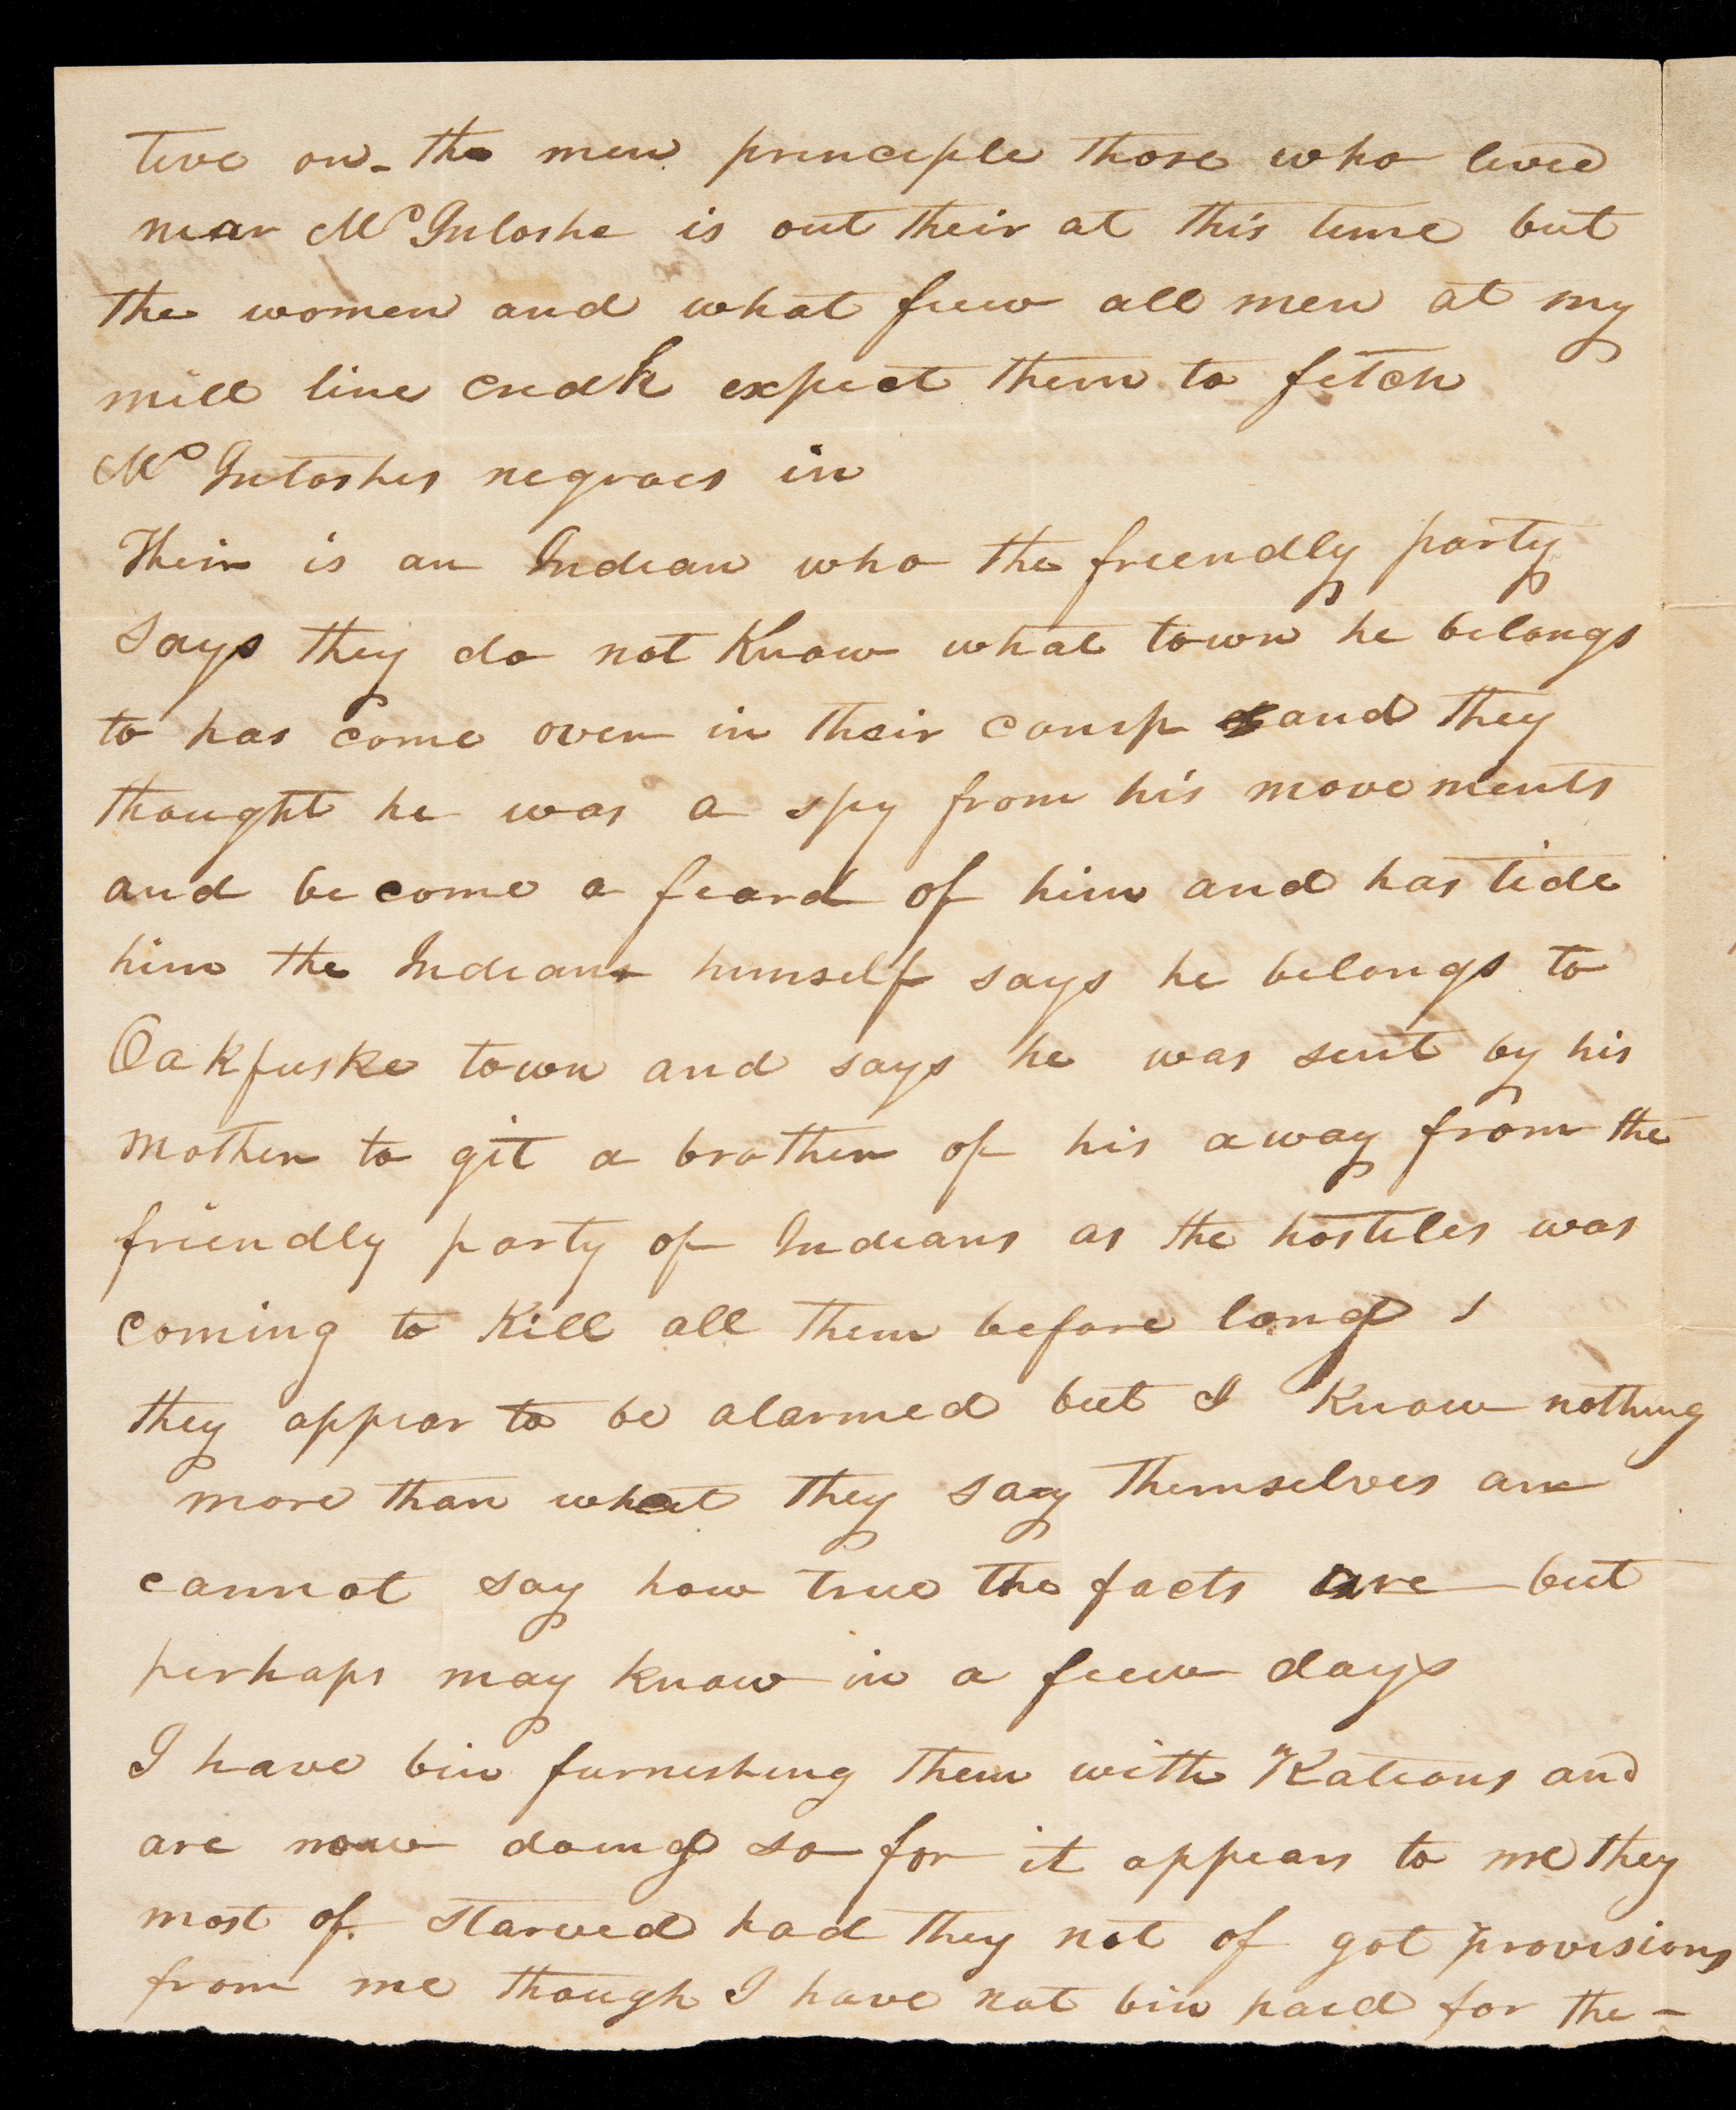 tive on - the men principle those who lived
near McIntoshe is out their at this time but
the women and what fiew all men at my
mill line creek expect them to fetch
McIntoshes negroes in
Their is an Indian who the freendly party
Says they do not Know what town he belongs
to has come over in their camp and they
thought he was a spy from his movements
and be come a feard of him and has tide
him the Indian himself says he belongs to
Oakfuske town and says he was sent by his
Mother to git a brother of his away from the
friendly party of Indians as the hostiles was
coming to Kill all them before long
they appear to be alarmed but I Know nothing
more than what they say themselves an
cannot say how true the facts are but
perhaps may know in a feew days
I have bin furnishing them with Rations and
are now doing so for it appears to me they
most of starved had they not of got provisions
from me though I have not bin paid for the -